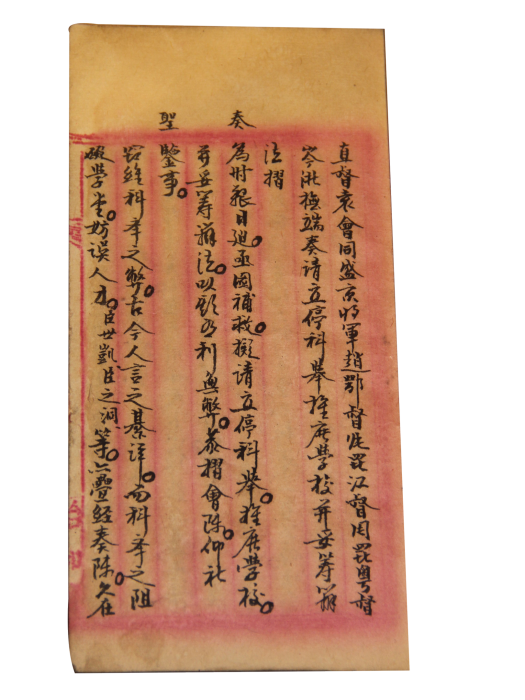 直督袁會同盛京將軍趙鄂督張署江督周署粵督
岑湘撫端奏請立停科舉推廣學校并妥籌辦
法摺
奏為時艱日迫。亟圖補救。擬請立停科舉。推廣學校。
并妥籌辦法。以期有利無弊。恭摺會陳。仰祈
聖鑒事。
竊維科舉之弊。古今人言之綦詳。而科舉之阻
礙學堂。妨誤人才。臣世凱臣之洞等。亦疊經奏陳。久在